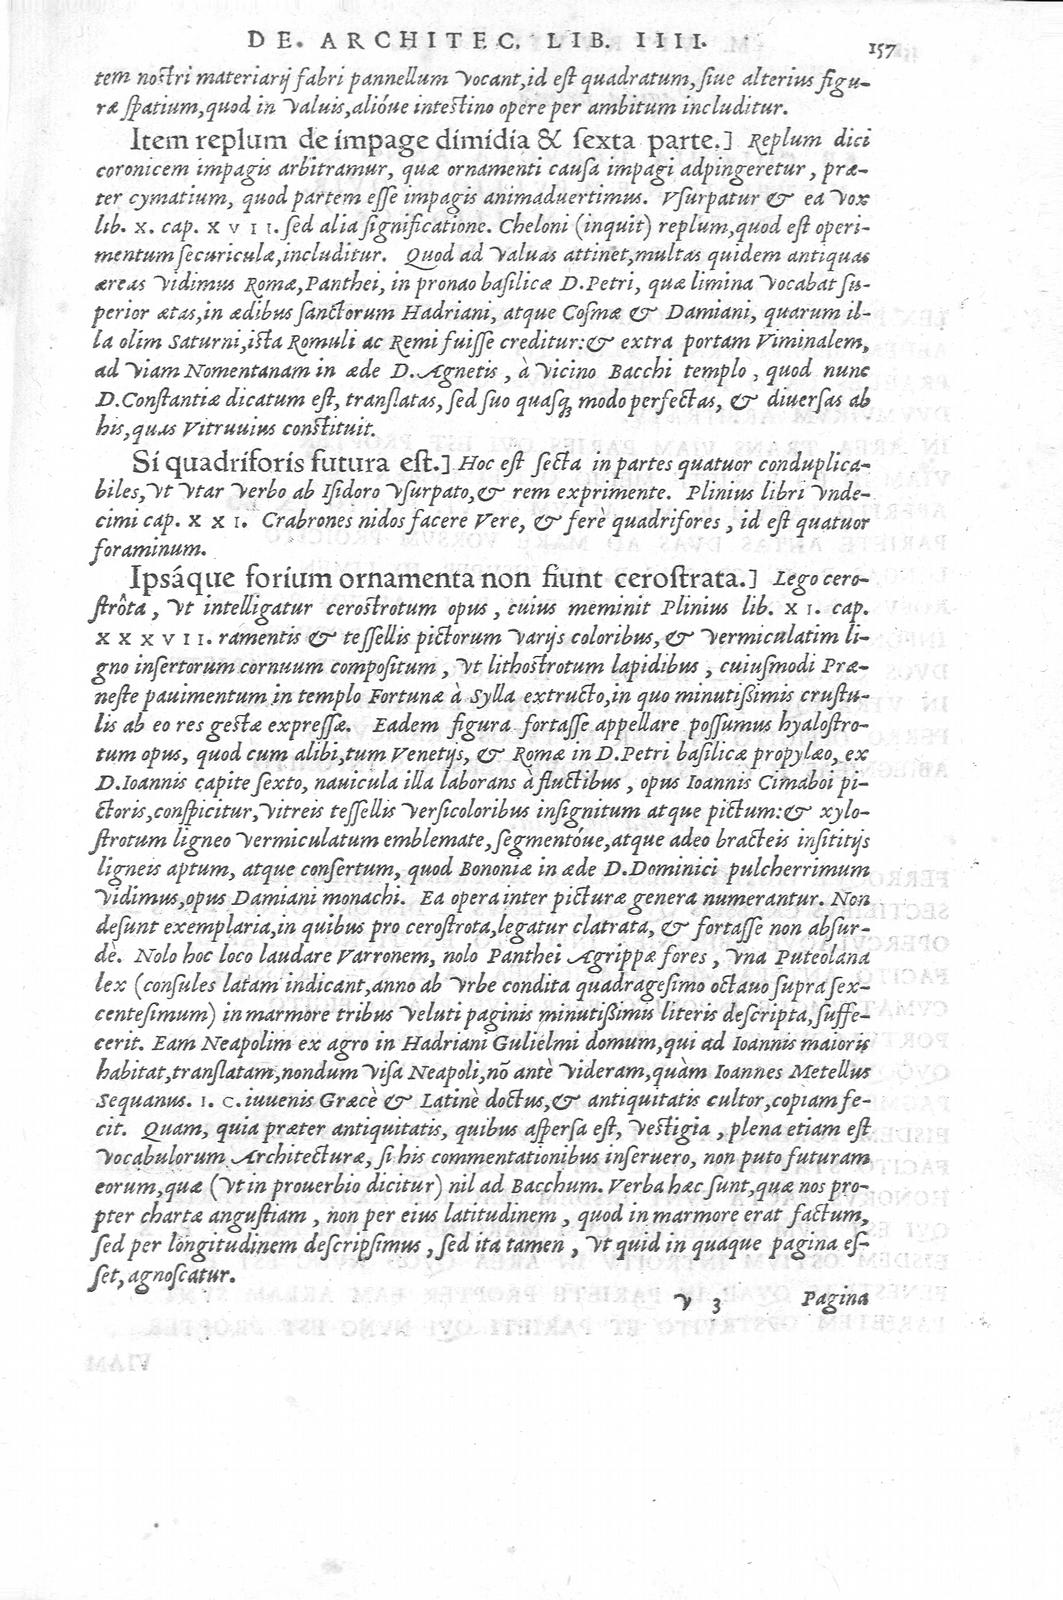 DE. ARCHITEC. LIB. IIII. 157
tem nostri materiarij fabri pannellum vocant, id est quadratum, siue alterius figu-
ræ spatium, quod in valuis, alióue intestino opere per ambitum includitur.
Item replum de impage dimidia & sexta parte.] Replum dici
coronicem impagis arbitramur, quæ ornamenti causa impagi adpingeretur, præ-
ter cymatium, quod partem esse impagis animaduertimus. Vsurpatur & ea vox
lib. X. cap. XVII. sed alia significatione. Cheloni (inquit) replum, quod est operi-
mentum securiculæ, includitur. Quod ad valuas attinet, multas quidem antiquas
æreas vidimus Romæ, Panthei, in pronao basilicæ D. Petri, quæ limina vocabat su-
perior ætas, in ædibus sanctorum Hadriani, atque Cosmæ & Damiani, quarum il-
la olim Saturni, ista Romuli ac Remi fuisse creditur: & extra portam Viminalem,
ad viam Nomentanam in æde D. Agnetis, à vicino Bacchi templo, quod nunc
D. Constantiæ dicatum est, translatas, sed suo quasq; modo perfectas, & diuersas ab
his, quas Vitruuius constituit.
Si quadriforis futura est.] Hoc est secta in partes quatuor conduplica-
biles, vt vtar verbo ab Isidoro vsurpato, & rem exprimente. Plinius libri vnde-
cimi cap. XXI. Crabrones nidos facere vere, & ferè quadrifores, id est quatuor
foraminum.
Ipsáque forium ornamenta non fiunt cerostrata.] Lego cero-
strôta, vt intelligatur cerostrotum opus, cuius meminit Plinius lib. XI. cap.
XXXVII. ramentis & tessellis pictorum varijs coloribus, & vermiculatim li-
gno insertorum cornuum compositum, vt lithostrotum lapidibus, cuiusmodi Præ-
neste pauimentum in templo Fortunæ à Sylla extructo, in quo minutißimis crustu-
lis ab eo res gestæ expressæ. Eadem figura fortasse appellare possumus hyalostro-
tum opus, quod cum alibi, tum Venetijs, & Romæ in D. Petri basilicæ propylæo, ex
D. Ioannis capite sexto, nauicula illa laborans à fluctibus, opus Ioannis Cimaboi pi-
ctoris, conspicitur, vitreis tessellis versicoloribus insignitum atque pictum: & xylo-
strotum ligneo vermiculatum emblemate, segmentóue, atque adeo bracteis insititijs
ligneis aptum, atque consertum, quod Bononiæ in æde D. Dominici pulcherrimum
vidimus, opus Damiani monachi. Ea opera inter picturæ genera numerantur. Non
desunt exemplaria, in quibus pro cerostrota, legatur clatrata, & fortasse non absur-
dè. Nolo hoc loco laudare Varronem, nolo Panthei Agrippæ fores, vna Puteolana
lex (consules latam indicant, anno ab vrbe condita quadragesimo octauo supra sex-
centesimum) in marmore tribus veluti paginis minutißimis literis descripta, suffe-
cerit. Eam Neapolim ex agro in Hadriani Gulielmi domum, qui ad Ioannis maioris
habitat, translatam, nondum visa Neapoli, nõ antè videram, quàm Ioannes Metellus
Sequanus. I. C. iuuenis Græcè & Latinè doctus, & antiquitatis cultor, copiam fe-
cit. Quam, quia præter antiquitatis, quibus aspersa est, vestigia, plena etiam est
vocabulorum Architecturæ, si his commentationibus inseruero, non puto futuram
eorum, quæ (vt in prouerbio dicitur) nil ad Bacchum. Verba hæc sunt, quæ nos pro-
pter chartæ angustiam, non per eius latitudinem, quod in marmore erat factum,
sed per longitudinem descripsimus, sed ita tamen, vt quid in quaque pagina es-
set, agnoscatur.
v 3 Pagina